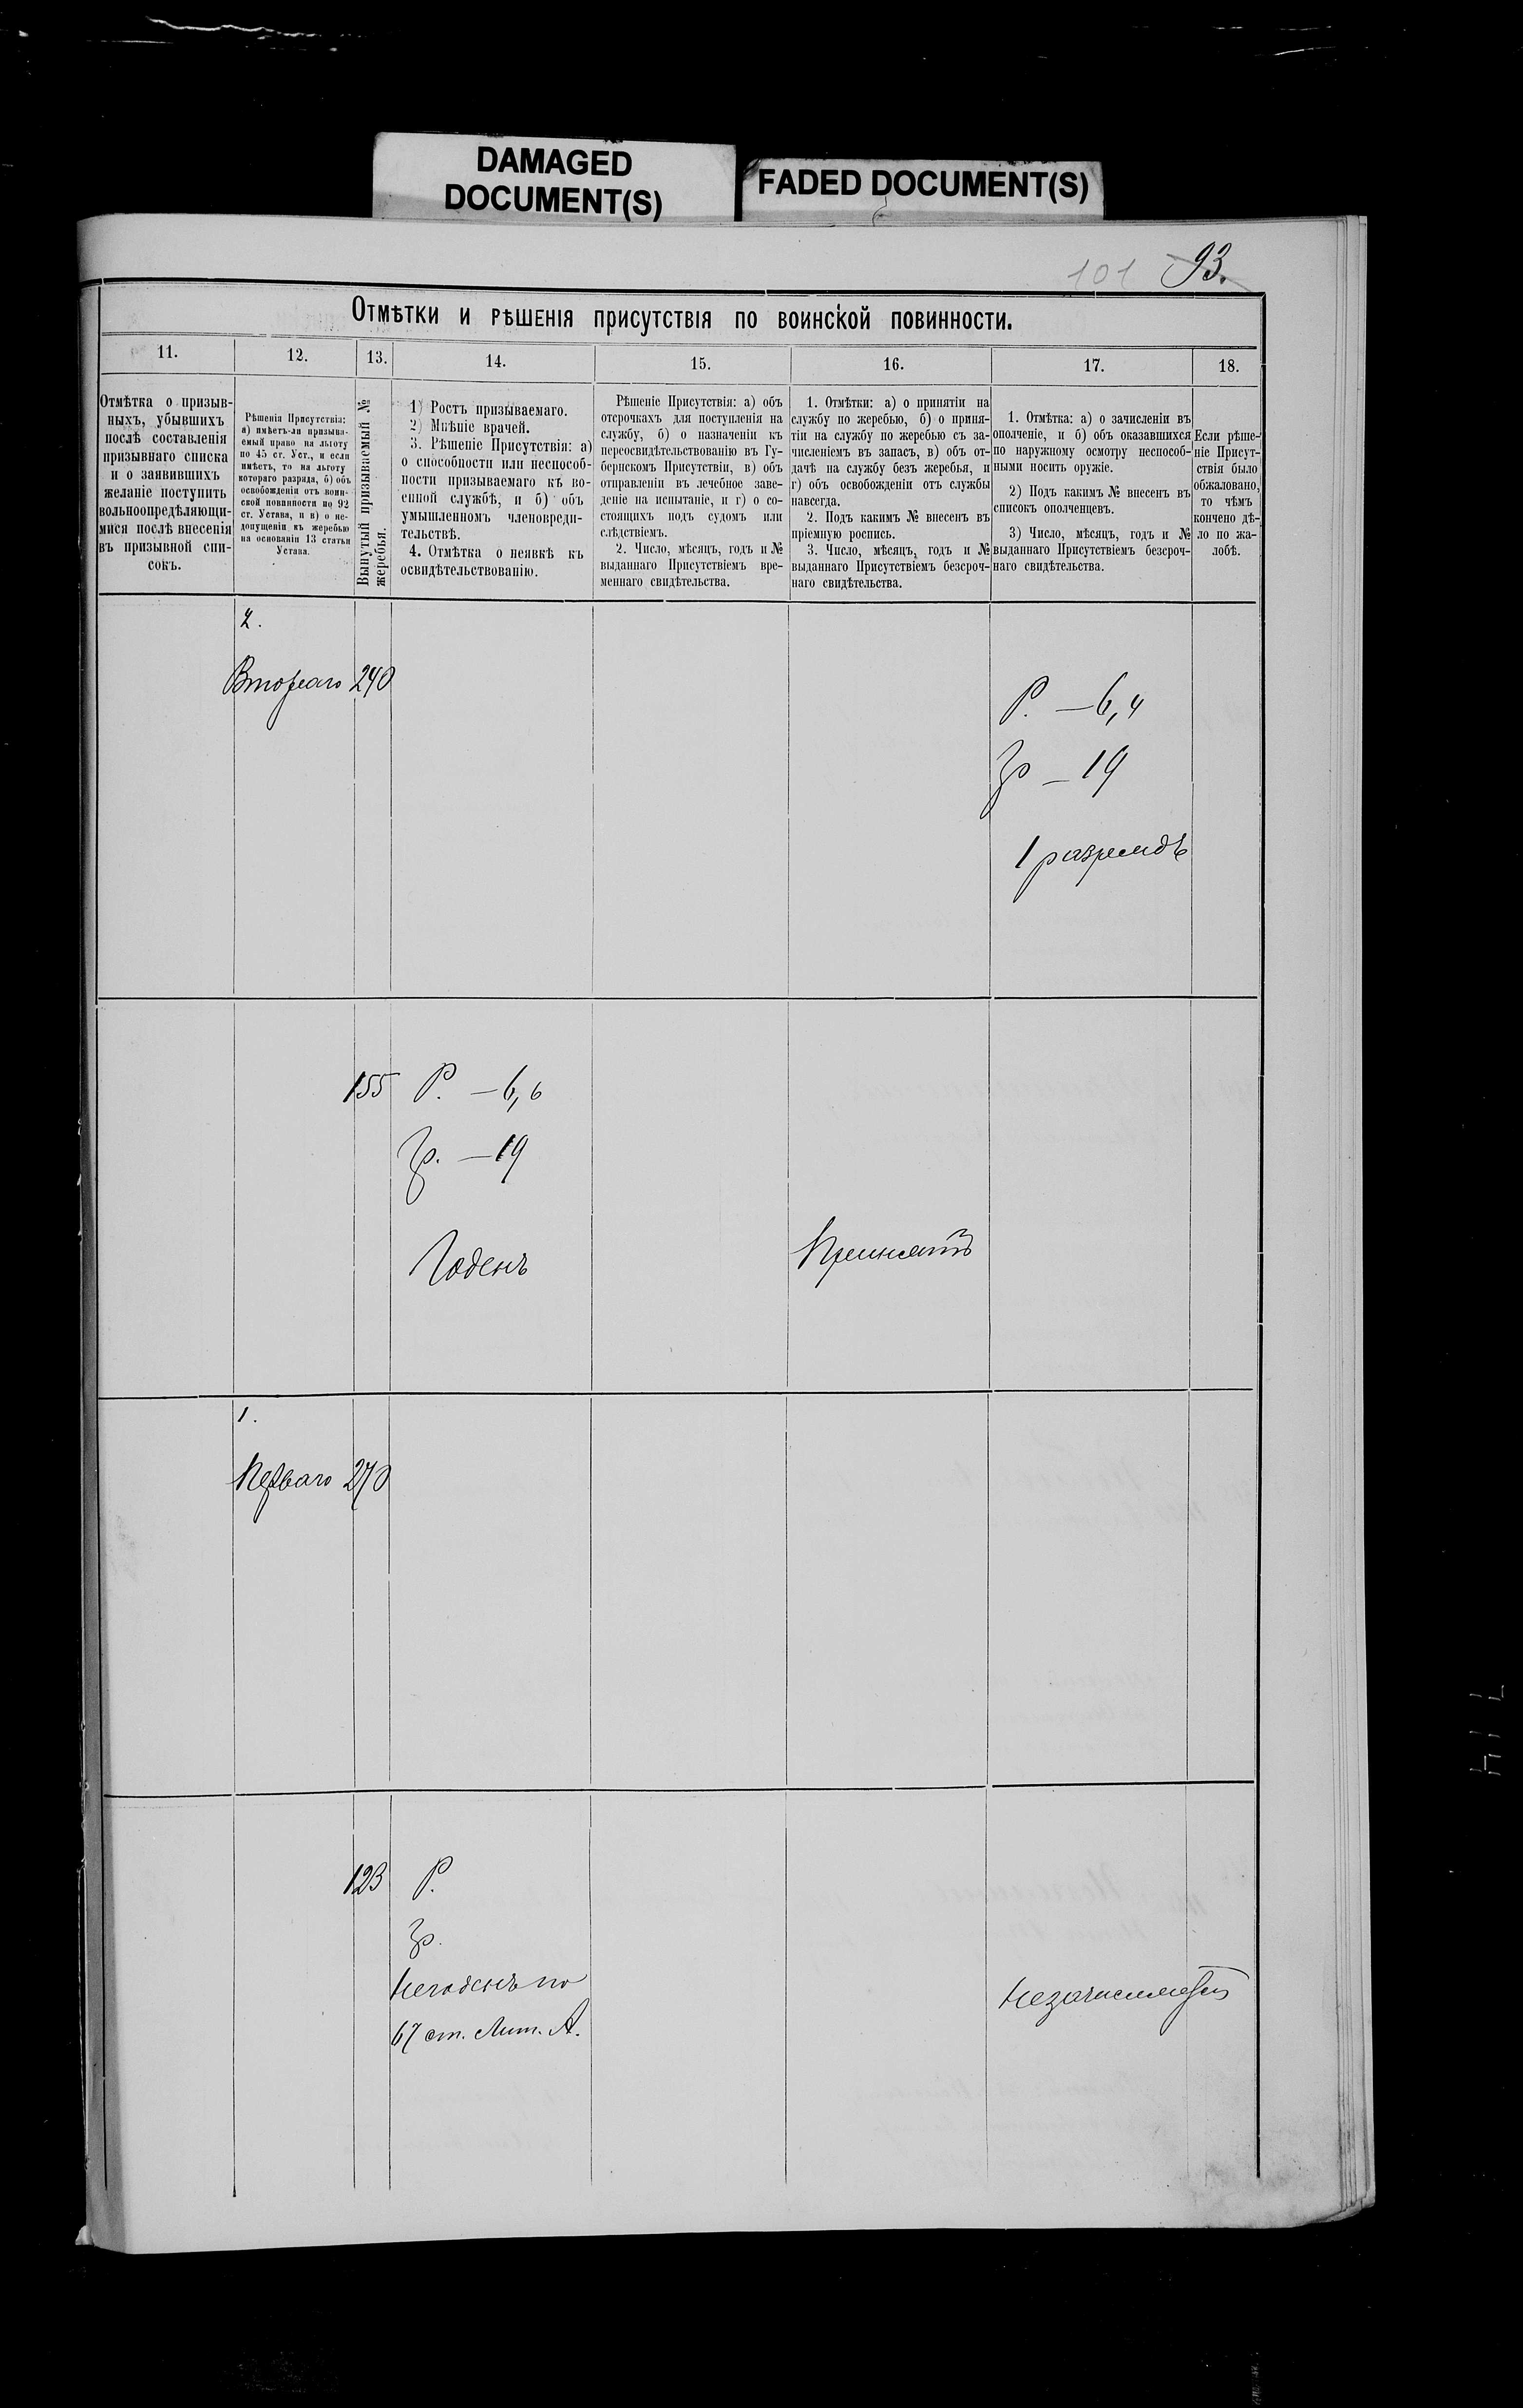 DAMAGED
DOCUMENT(S)
FADED DOCUMENT(S)
101 93.
Отмѣтки и рѣшенія присутствія по воинской повинности.
11.
12.
13.
14.
15.
16.
17.
18.
Отмѣтка о призыв-
ныхъ, убывшихъ
послѣ составленія
призывнаго списка
и о заявившихъ
желаніе поступить
вольноопредѣляющи-
мися послѣ внесенія
въ призывной спи-
сокъ.
Рѣшенія Присутствія:
а) имѣетъ-ли призыва-
емый право на льготу
по 45 ст. Уст., и если
имѣетъ, то на льготу
котораго разряда, б) объ
освобожденіи отъ воин-
ской повинности по 92
ст. Устава, и в) о не-
допущеніи къ жеребью
на основаніи 13 статьи
Устава.
Вынутый призываемый №
жеребья.
1) Ростъ призываемаго.
2) Мнѣніе врачей.
3. Рѣшеніе Присутствія: а)
о способности или неспособ-
ности призываемаго къ во-
енной службѣ, и б) объ
умышленномъ членовреди-
тельствѣ.
4. Отмѣтка о неявкѣ къ
освидѣтельствованію.
Рѣшеніе Присутствія: а) объ
отсрочкахъ для поступленія на
службу, б) о назначеніи къ
переосвидѣтельствованію въ Гу-
бернскомъ Присутствіи, в) объ
отправленіи въ лечебное заве-
деніе на испытаніе, и г) о со-
стоящихъ подъ судомъ или
слѣдствіемъ.
2. Число, мѣсяцъ, годъ и №
выданнаго Присутствіемъ вре-
меннаго свидѣтельства.
1. Отмѣтки: а) о принятіи на
службу по жеребью, б) о приня-
тіи на службу по жеребью съ за-
численіемъ въ запасъ, в) объ от-
дачѣ на службу безъ жеребья, и
г) объ освобожденіи отъ службы
навсегда.
2. Подъ какимъ № внесенъ въ
пріемную роспись.
3. Число, мѣсяцъ, годъ и №
выданнаго Присутствіемъ безсроч-
наго свидѣтельства.
1. Отмѣтка: а) о зачисленіи въ
ополченіе, и б) объ оказавшихся
по наружному осмотру неспособ-
ными носить оружіе.
2) Подъ какимъ № внесенъ въ
списокъ ополченцевъ.
3) Число, мѣсяцъ, годъ и №
выданнаго Присутствіемъ безсроч-
наго свидѣтельства.
Если рѣше-
ніе Присут-
ствія было
обжаловано,
то чѣмъ
кончено дѣ-
ло по жа-
лобѣ.
2.
Втораго 240
Р. — 6,4
Гр — 19
1 разрядъ
155 Р. — 6,6
Гр. — 19
Годенъ
Принятъ
1.
Перваго 270
123 Р.
Гр.
Негоденъ по
67 ст. Лит. А.